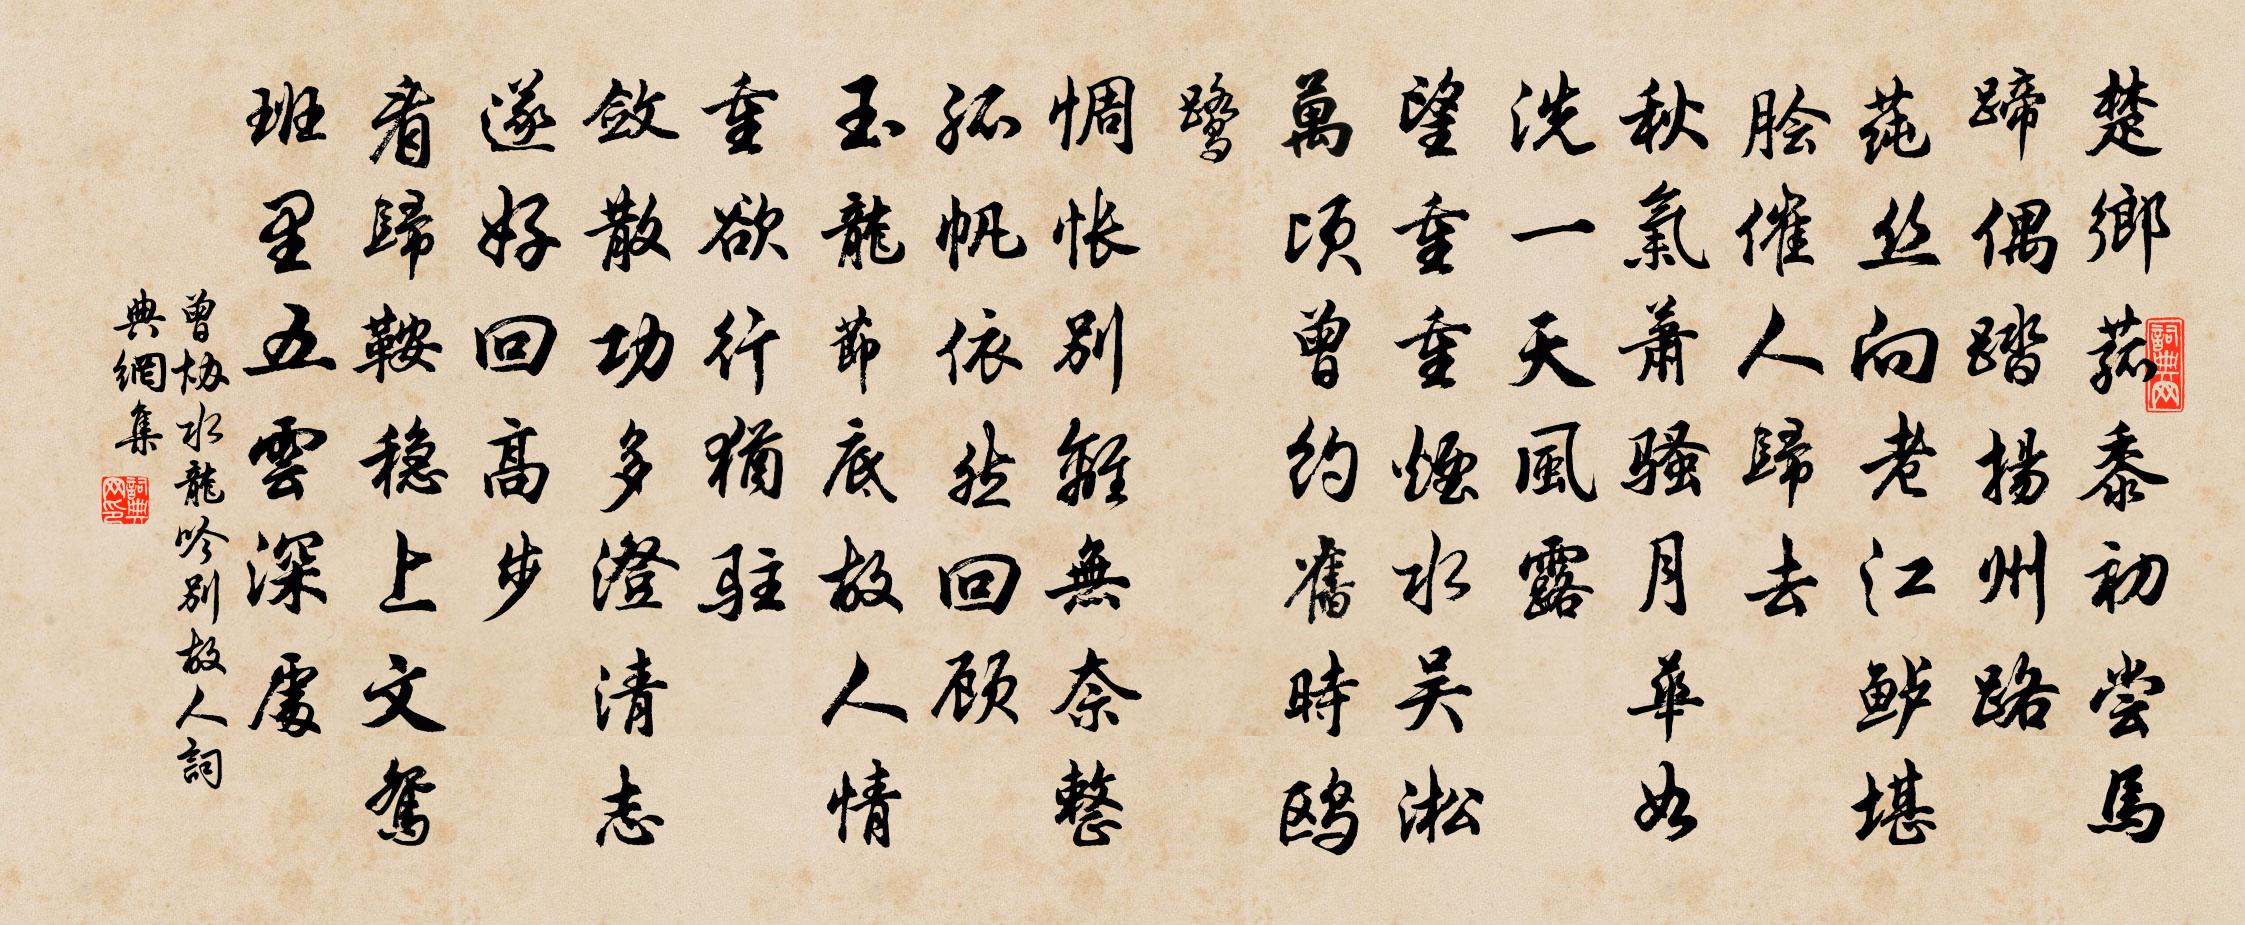 楚鄉菰黍初嘗馬
蹄偶踏揚州路
蒓丝向老江鲈堪
脍催人歸去
秋氣萧骚月華如
洗一天風露
望重重煙水吴淞
萬頃曾約舊時鸥
鹭
惆怅别離無奈整
孤帆依然回顾
玉龍節底故人情
重欲行猶駐
敛散功多澄清志
遂好回高步
看歸鞍穏上文鴛
班里五雲深處
曾協水龍吟别故人詞
典網集
詞典网
詞典网印